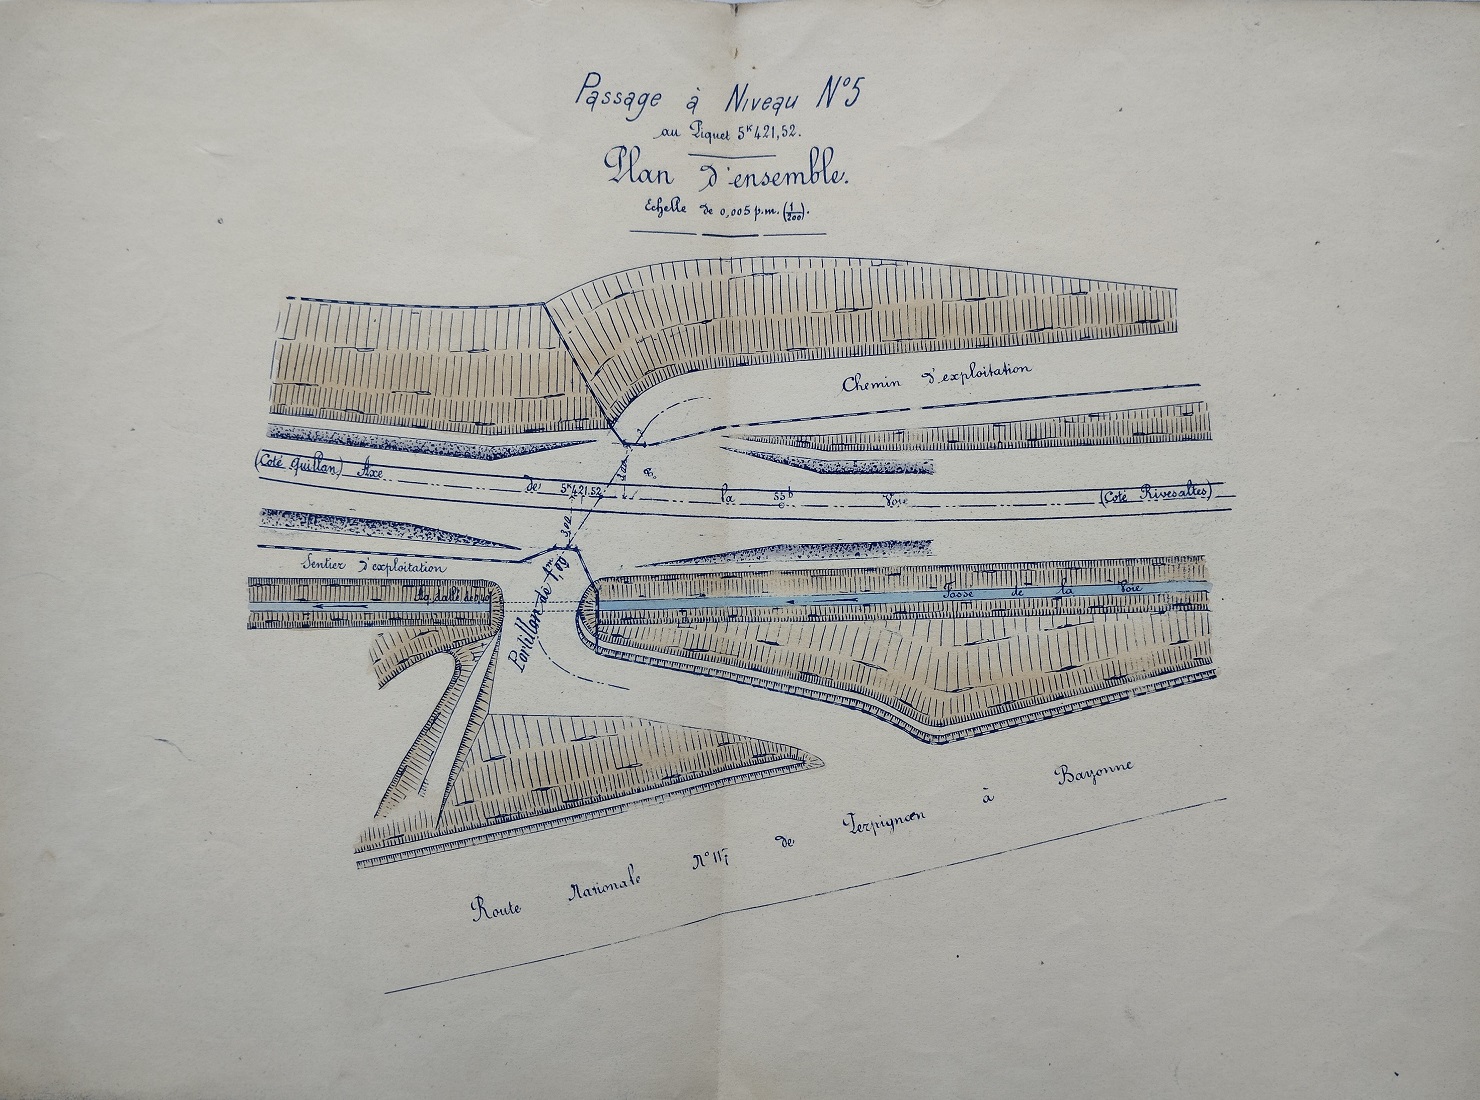 Passage à Niveau N°5
au Piquet 5ᴷ421,52.
Plan d'ensemble.
Echelle de 0,005 p.m. (1/200).
Chemin d'exploitation
(Coté Quillan) Axe de 5ᴷ421,52 la Voie (Coté Rivesaltes)
3,00
Sentier d'exploitation
Portillon de 1ᵐ,00
Fosse de la Voie
Route Nationale N° 117 de Perpignan à Bayonne